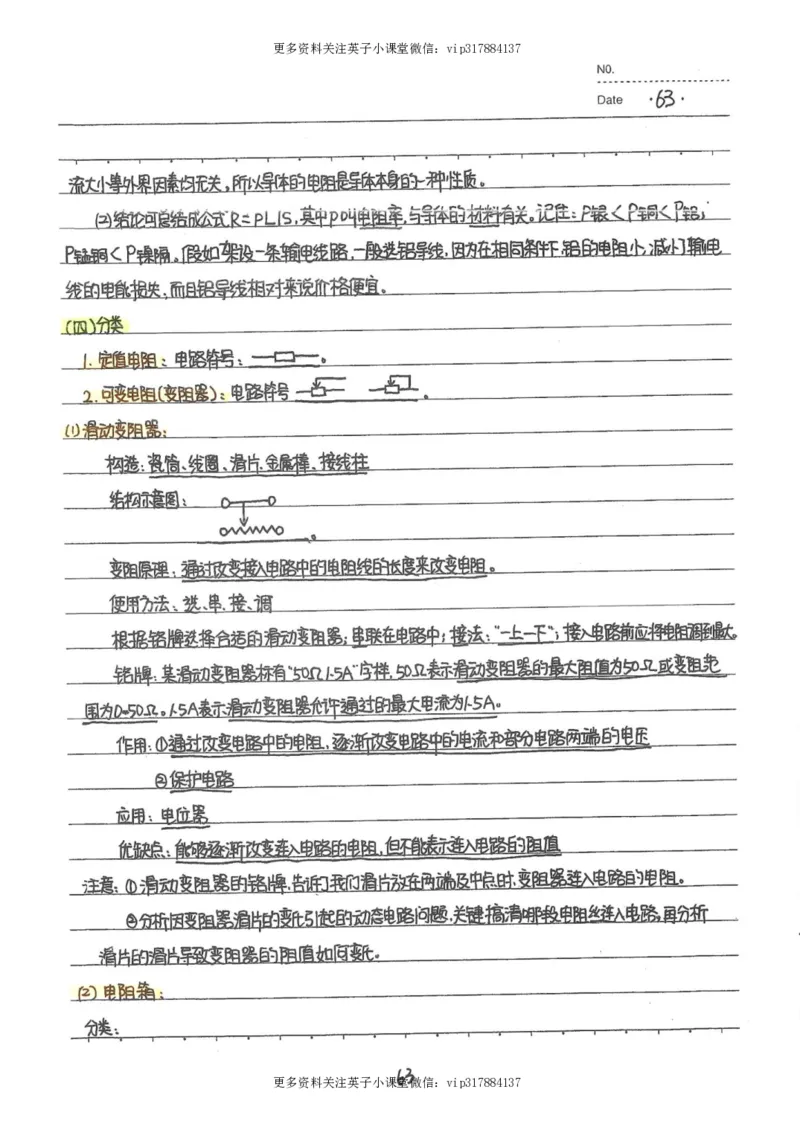 更多资料关注英子小课堂微信：vip317884137
NO.
Date ·63·
流大小等外界因素均无关，所以导体的电阻是导体本身的一种性质。
(2)结论可总结成公式R=ρL/S，其中ρ叫电阻率，与导体的材料有关。记住：ρ银<ρ铜<ρ铝，
ρ锰铜<ρ镍隔。假如架设一条输电线路，一般选铝导线，因为在相同条件下，铝的电阻小，减小了输电
线的电能损失，而且铝导线相对来说价格便宜。
(四)分类
1. 定值电阻：电路符号：。
2. 可变电阻(变阻器)：电路符号 。
(1)滑动变阻器：
构造：瓷筒、线圈、滑片、金属棒、接线柱
结构示意图：
。
变阻原理：通过改变接入电路中的电阻线的长度来改变电阻。
使用方法：选、串、接、调
根据铭牌选择合适的滑动变阻器；串联在电路中；接法：“一上一下”；接入电路前应将电阻调到最大。
铭牌：某滑动变阻器标有“50Ω1.5A”字样，50Ω表示滑动变阻器的最大阻值为50Ω或变阻范
围为0-50Ω。1.5A表示滑动变阻器允许通过的最大电流为1.5A。
作用：①通过改变电路中的电阻，逐渐改变电路中的电流和部分电路两端的电压
②保护电路
应用：电位器
优缺点：能够逐渐改变连入电路的电阻，但不能表示连入电路的阻值
注意：①滑动变阻器的铭牌，告诉了我们滑片放在两端及中点时，变阻器连入电路的电阻。
②分析因变阻器滑片的变化引起的动态电路问题，关键搞清哪段电阻丝连入电路，再分析
滑片的滑片导致变阻器的阻值如何变化。
(2) 电阻箱：
分类：
63
更多资料关注英子小课堂微信：vip317884137